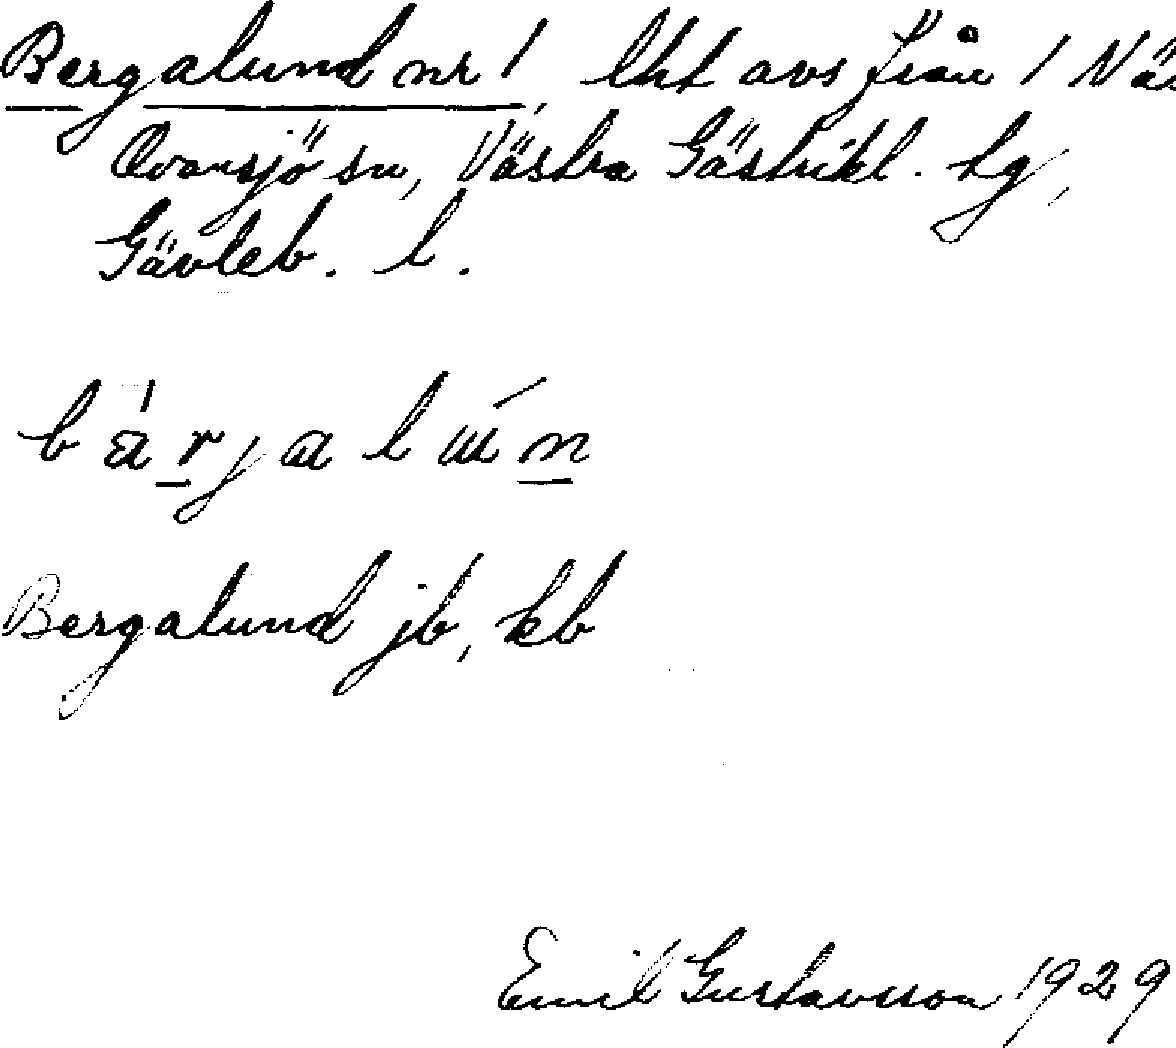 Bergalund nr 1, lht avs från 1 Näs
Ovansjö sn, Västra Gästrikl. tg,
Gävleb. l.
bärjalun
Bergalund jb, kb
Emil Gustavsson 1929